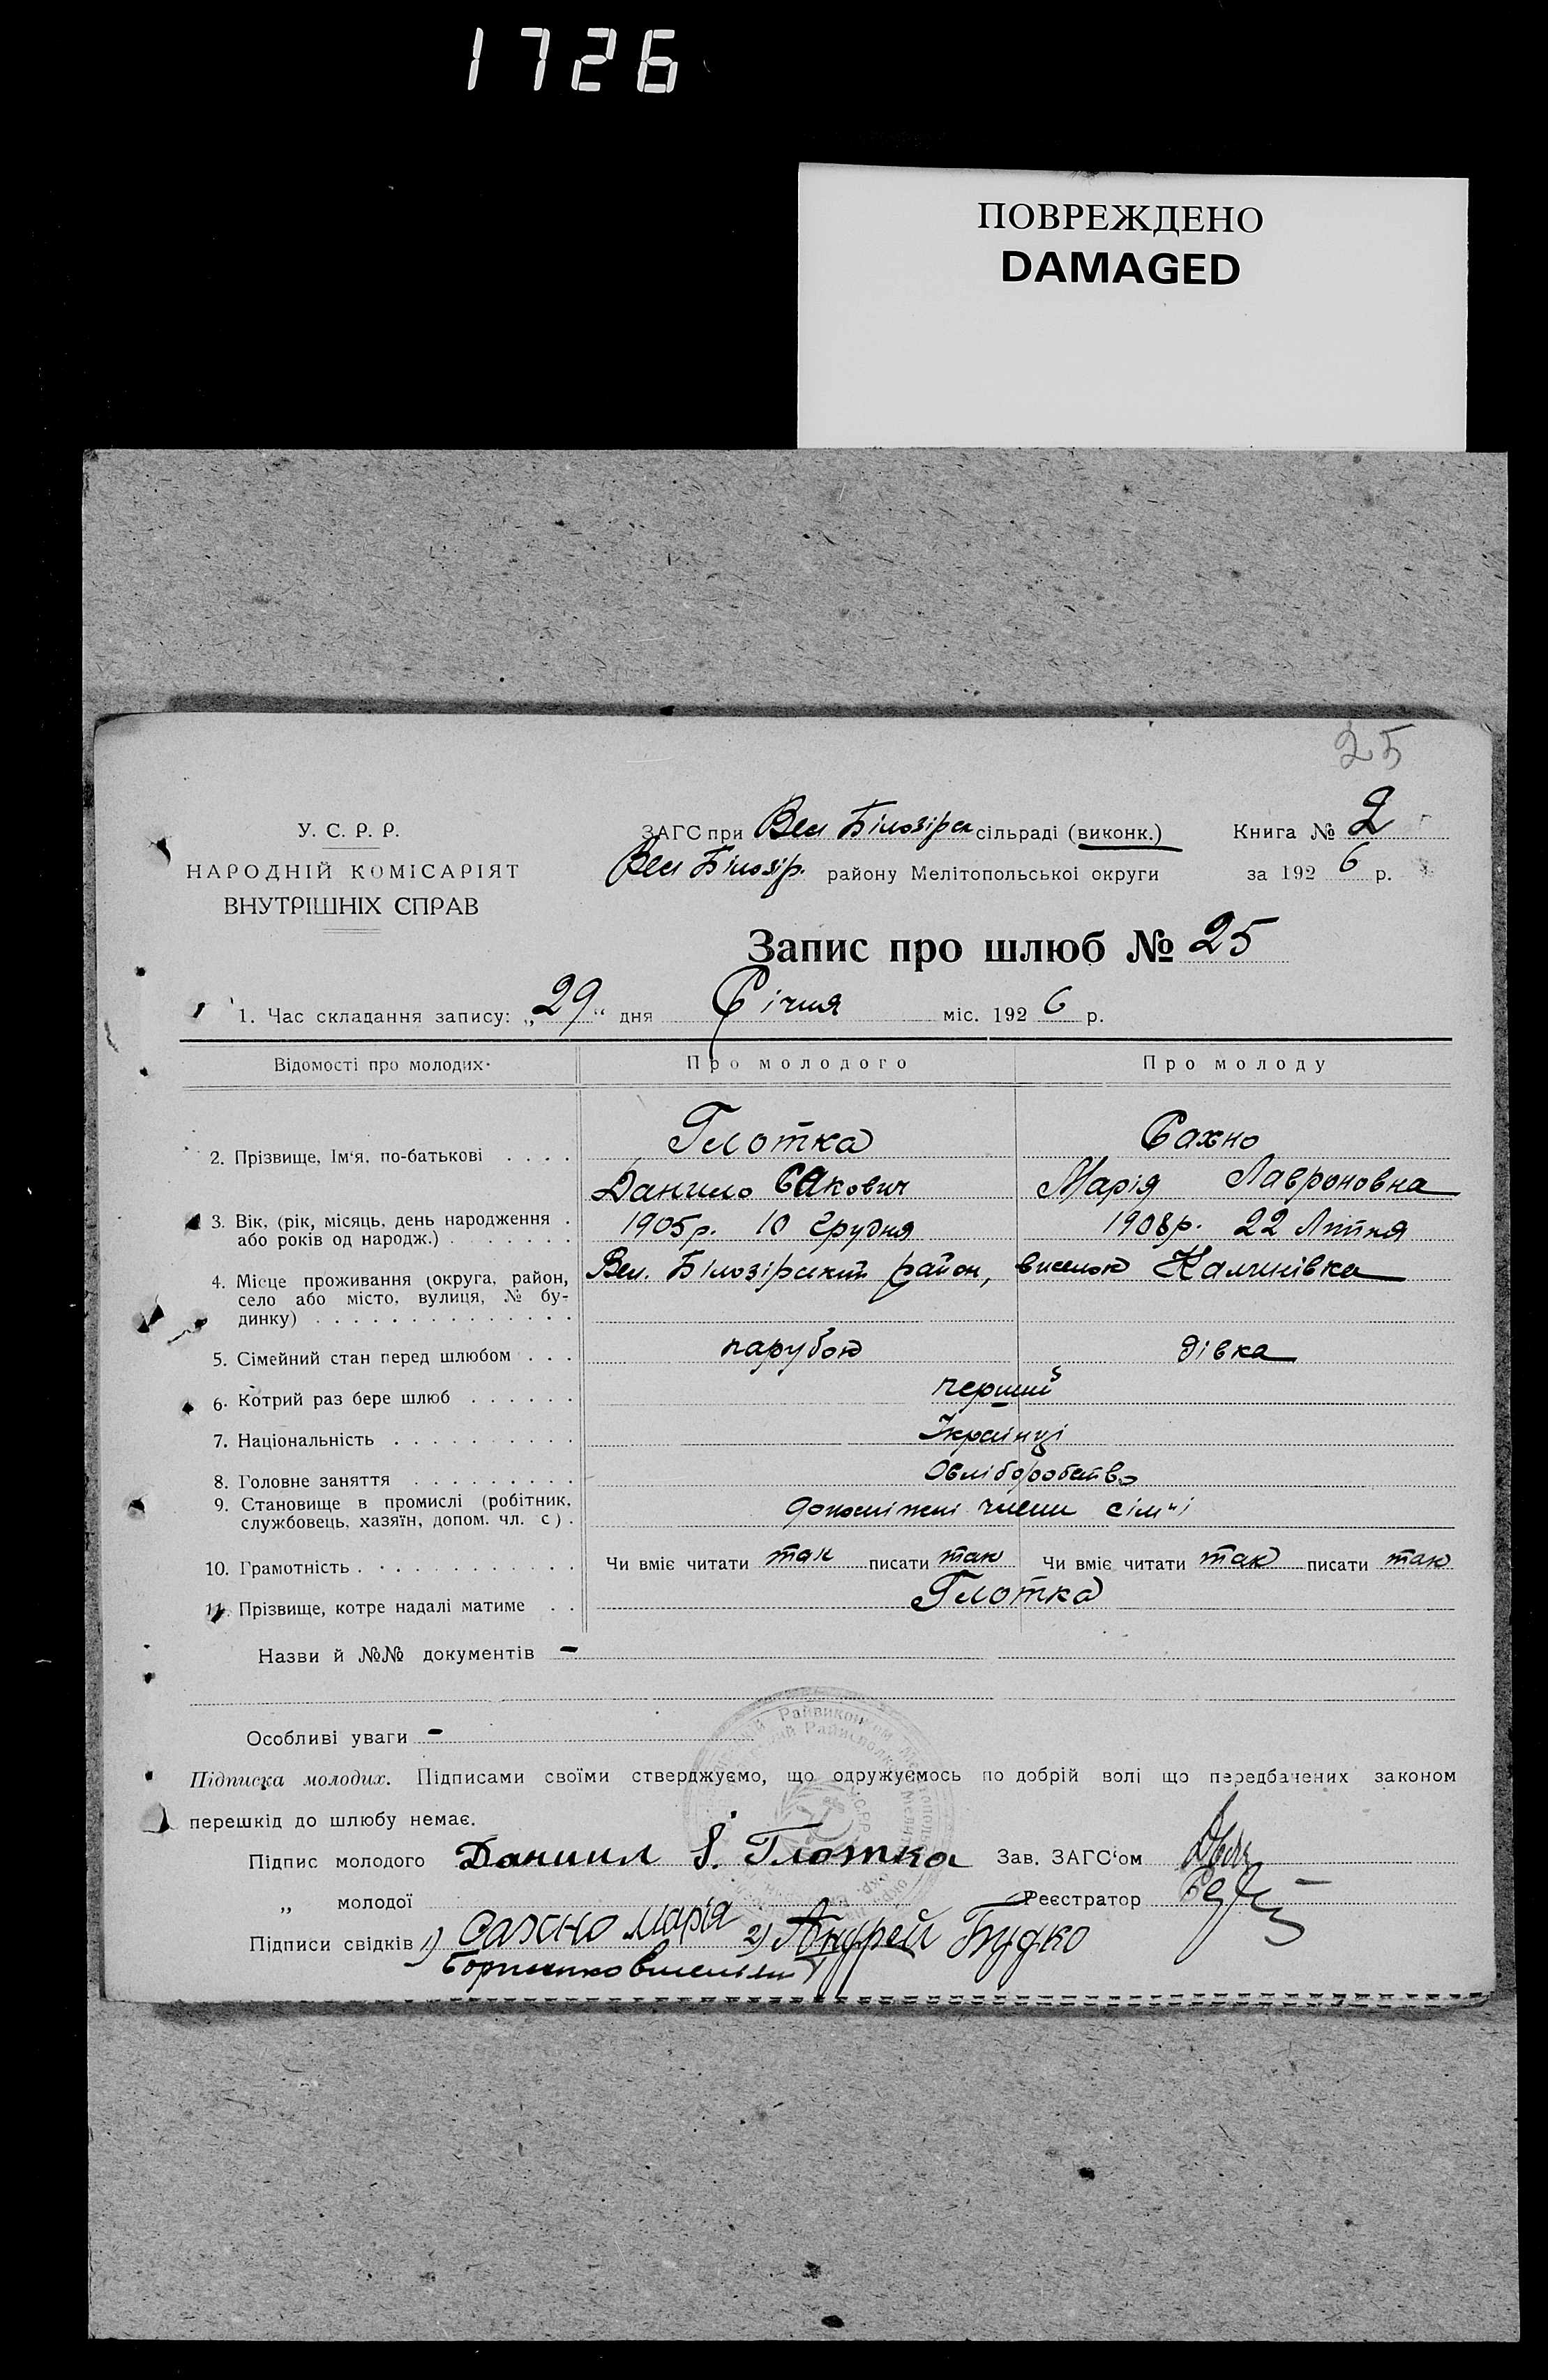 1726
ПОВРЕЖДЕНО
DAMAGED
25
У. С. Р. Р.
НАРОДНІЙ КОМІСАРІЯТ
ВНУТРІШНІХ СПРАВ
ЗАГС при Вел Білозірск сільраді (виконк.) Книга № 2
Вел Білозір. району Мелітопольської округи за 192 6 р.
Запис про шлюб № 25
1. Час складання запису: „29“ дня Січня міс. 192 6 р.
Відомості про молодих. Про молодого Про молоду
2. Прізвище, Ім'я, по-батькові . . . . Глотка Сахно
Данило Сакович Марія Лавроновна
3. Вік, (рік, місяць, день народження . 1905р. 10 Грудня 1908р. 22 Липня
або років од народж.) . . . . . . .
4. Місце проживання (округа, район, Вел. Білозірский район, виселок Калинівка
село або місто, вулиця, № бу-
динку) . . . . . . . . . . . . . .
5. Сімейний стан перед шлюбом . . . парубок дівка
6. Котрий раз бере шлюб . . . . . . перший
7. Національність . . . . . . . . . . Українці
8. Головне заняття . . . . . . . . .
9. Становище в промислі (робітник, члени сім"ї
службовець, хазяїн, допом. чл. с) .
10. Грамотність . . . . . . . . . . Чи вміє читати так писати так Чи вміє читати так писати так
11. Прізвище, котре надалі матиме . . Глотка
Назви й №№ документів -
Особливі уваги -
Підписка молодих. Підписами своїми стверджуємо, що одружуємось по добрій волі що передбачених законом
перешкід до шлюбу немає.
Підпис молодого Даниил S. Глотка Зав. ЗАГС'ом
„ молодої Реєстратор
Підписи свідків 1) Сахно Марія 2) Андрей Будко